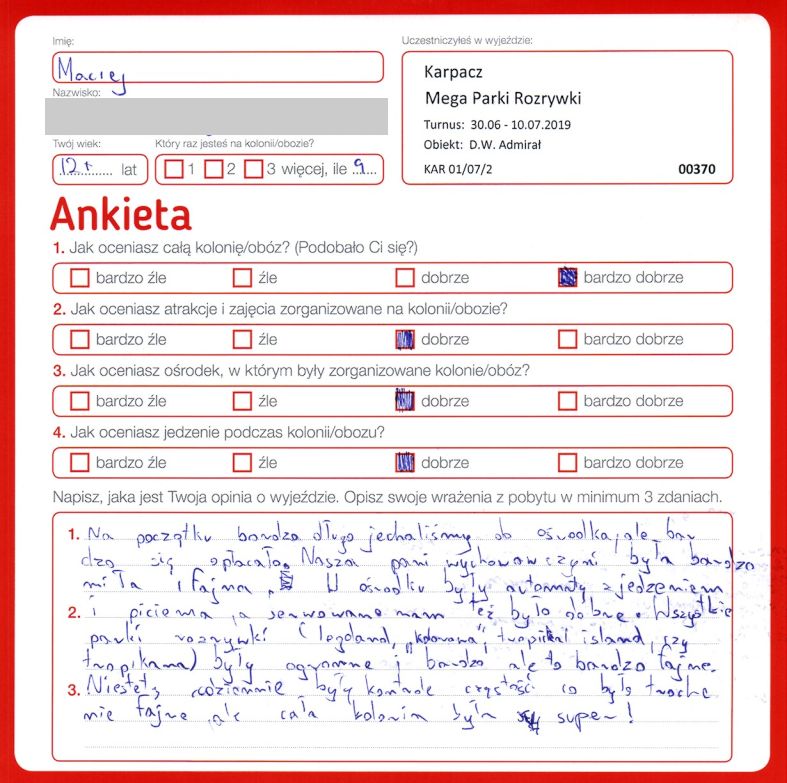 Imię:
Maciej
Nazwisko:
Twój wiek:
12 r. lat
Który raz jesteś na kolonii/obozie?
1 2 3 więcej, ile 9
Uczestniczyłeś w wyjeździe:
Karpacz
Mega Parki Rozrywki
Turnus: 30.06 - 10.07.2019
Obiekt: D.W. Admirał
KAR 01/07/2 00370
Ankieta
1. Jak oceniasz całą kolonię/obóz? (Podobało Ci się?)
bardzo źle źle dobrze bardzo dobrze
2. Jak oceniasz atrakcje i zajęcia zorganizowane na kolonii/obozie?
bardzo źle źle dobrze bardzo dobrze
3. Jak oceniasz ośrodek, w którym były zorganizowane kolonie/obóz?
bardzo źle źle dobrze bardzo dobrze
4. Jak oceniasz jedzenie podczas kolonii/obozu?
bardzo źle źle dobrze bardzo dobrze
Napisz, jaka jest Twoja opinia o wyjeździe. Opisz swoje wrażenia z pobytu w minimum 3 zdaniach.
1. Na początku bardzo długo jechaliśmy do ośrodka, ale bar
dzo się opłacało. Nasza pani wychowawczyni była bardzo
miła i fajna. W ośrodku były automaty z jedzeniem
2. i piciem a serwowane nam też było dobre. Wszystkie
parki rozrywki (legoland, tropikal island, czy
tropikana) były ogromne i bardzo ale to bardzo fajne.
3. Niestety codziennie były kontrole czystości co było troche
nie fajne ale cała kolonia była super!